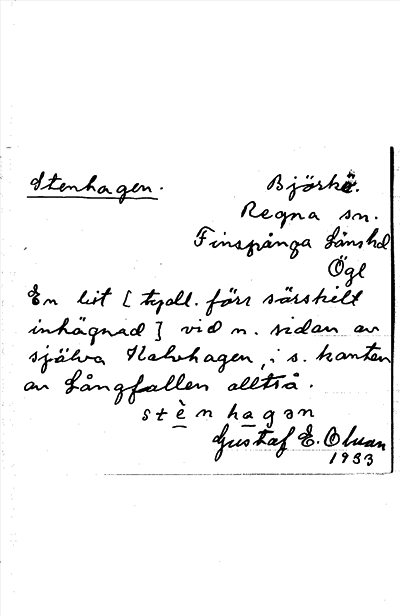 Stenhagen.
Björke.
Regna sn.
Finspånga länshd
Ögl
En bit [ tydl. förr särskilt
inhägnad ] vid n. sidan av
själva Kalvhagen, i s. kanten
av Långfallen alltså.
stènhagən
Gustaf E. Olsson
1933